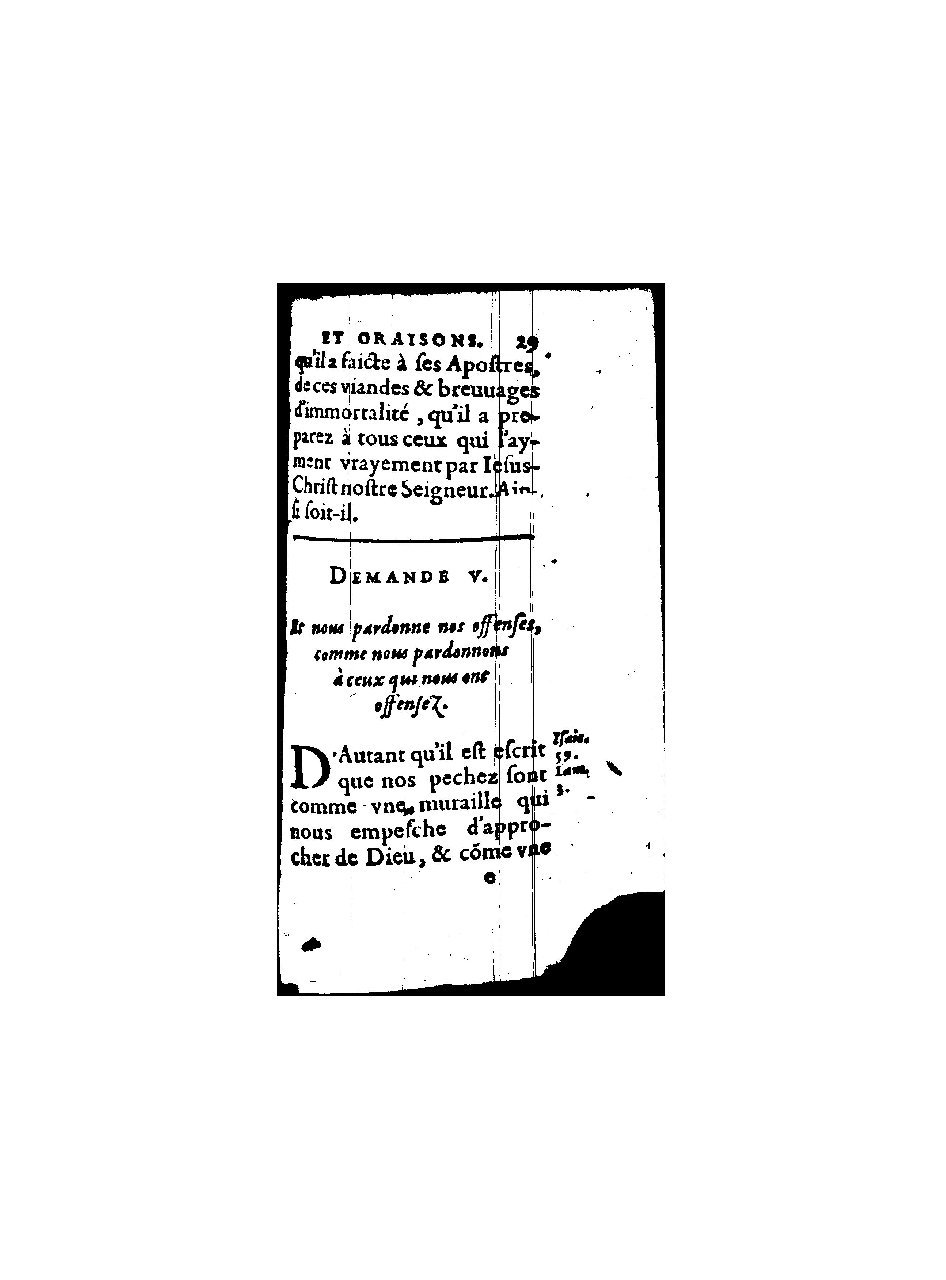 ET ORAISONS. 29
qu'il a faicte à ses Apostres,
de ces viandes & breuuages
d'immortalité, qu'il a pre-
parez à tous ceux qui l'ay-
ment vrayement par Iesus-
Christ nostre Seigneur. Ain-
si soit-il.
DEMANDE V.
Et nous pardonne nos offenses,
comme nous pardonnons
à ceux qui nous ont
offensez.
D'Autant qu'il est escrit
que nos pechez sont
comme vne muraille qui
nous empesche d'appro-
cher de Dieu, & cõme vne
Isaie.
59.
Lam.
3.
e